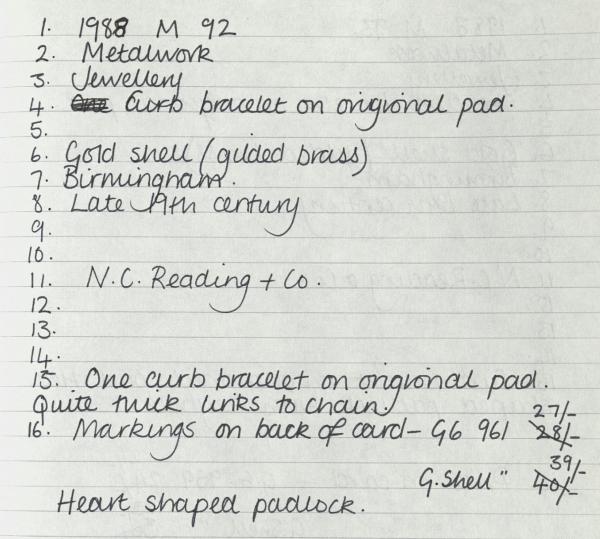 1. 1988 M 92
2. Metalwork
3. Jewellery
4. One Curb bracelet on origional pad.
5.
6. Gold shell (gilded brass)
7. Birmingham.
8. Late 19th century
9.
10.
11. N.C. Reading + Co.
12.
13.
14.
15. One curb bracelet on origional pad.
Quite thick links to chain.
27/-
16. Markings on back of card - G6 961 28/-
39/-
G. Shell " 40/-
Heart shaped padlock.